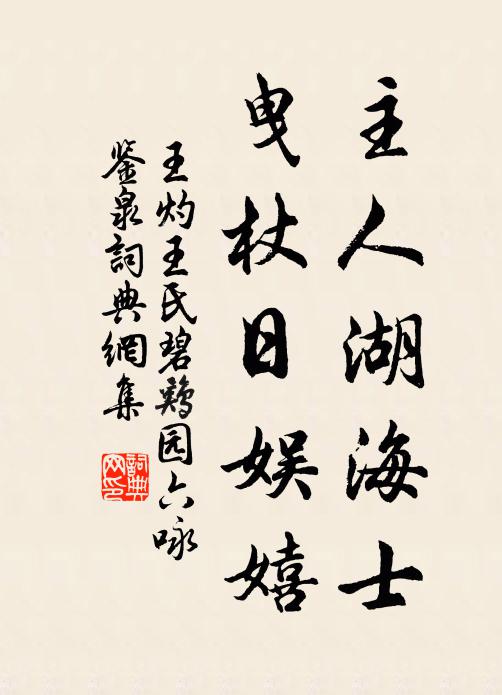 主人湖海士
曳杖日娱嬉
王灼王氏碧鸡园六咏
鉴泉詞典網集
詞典网印